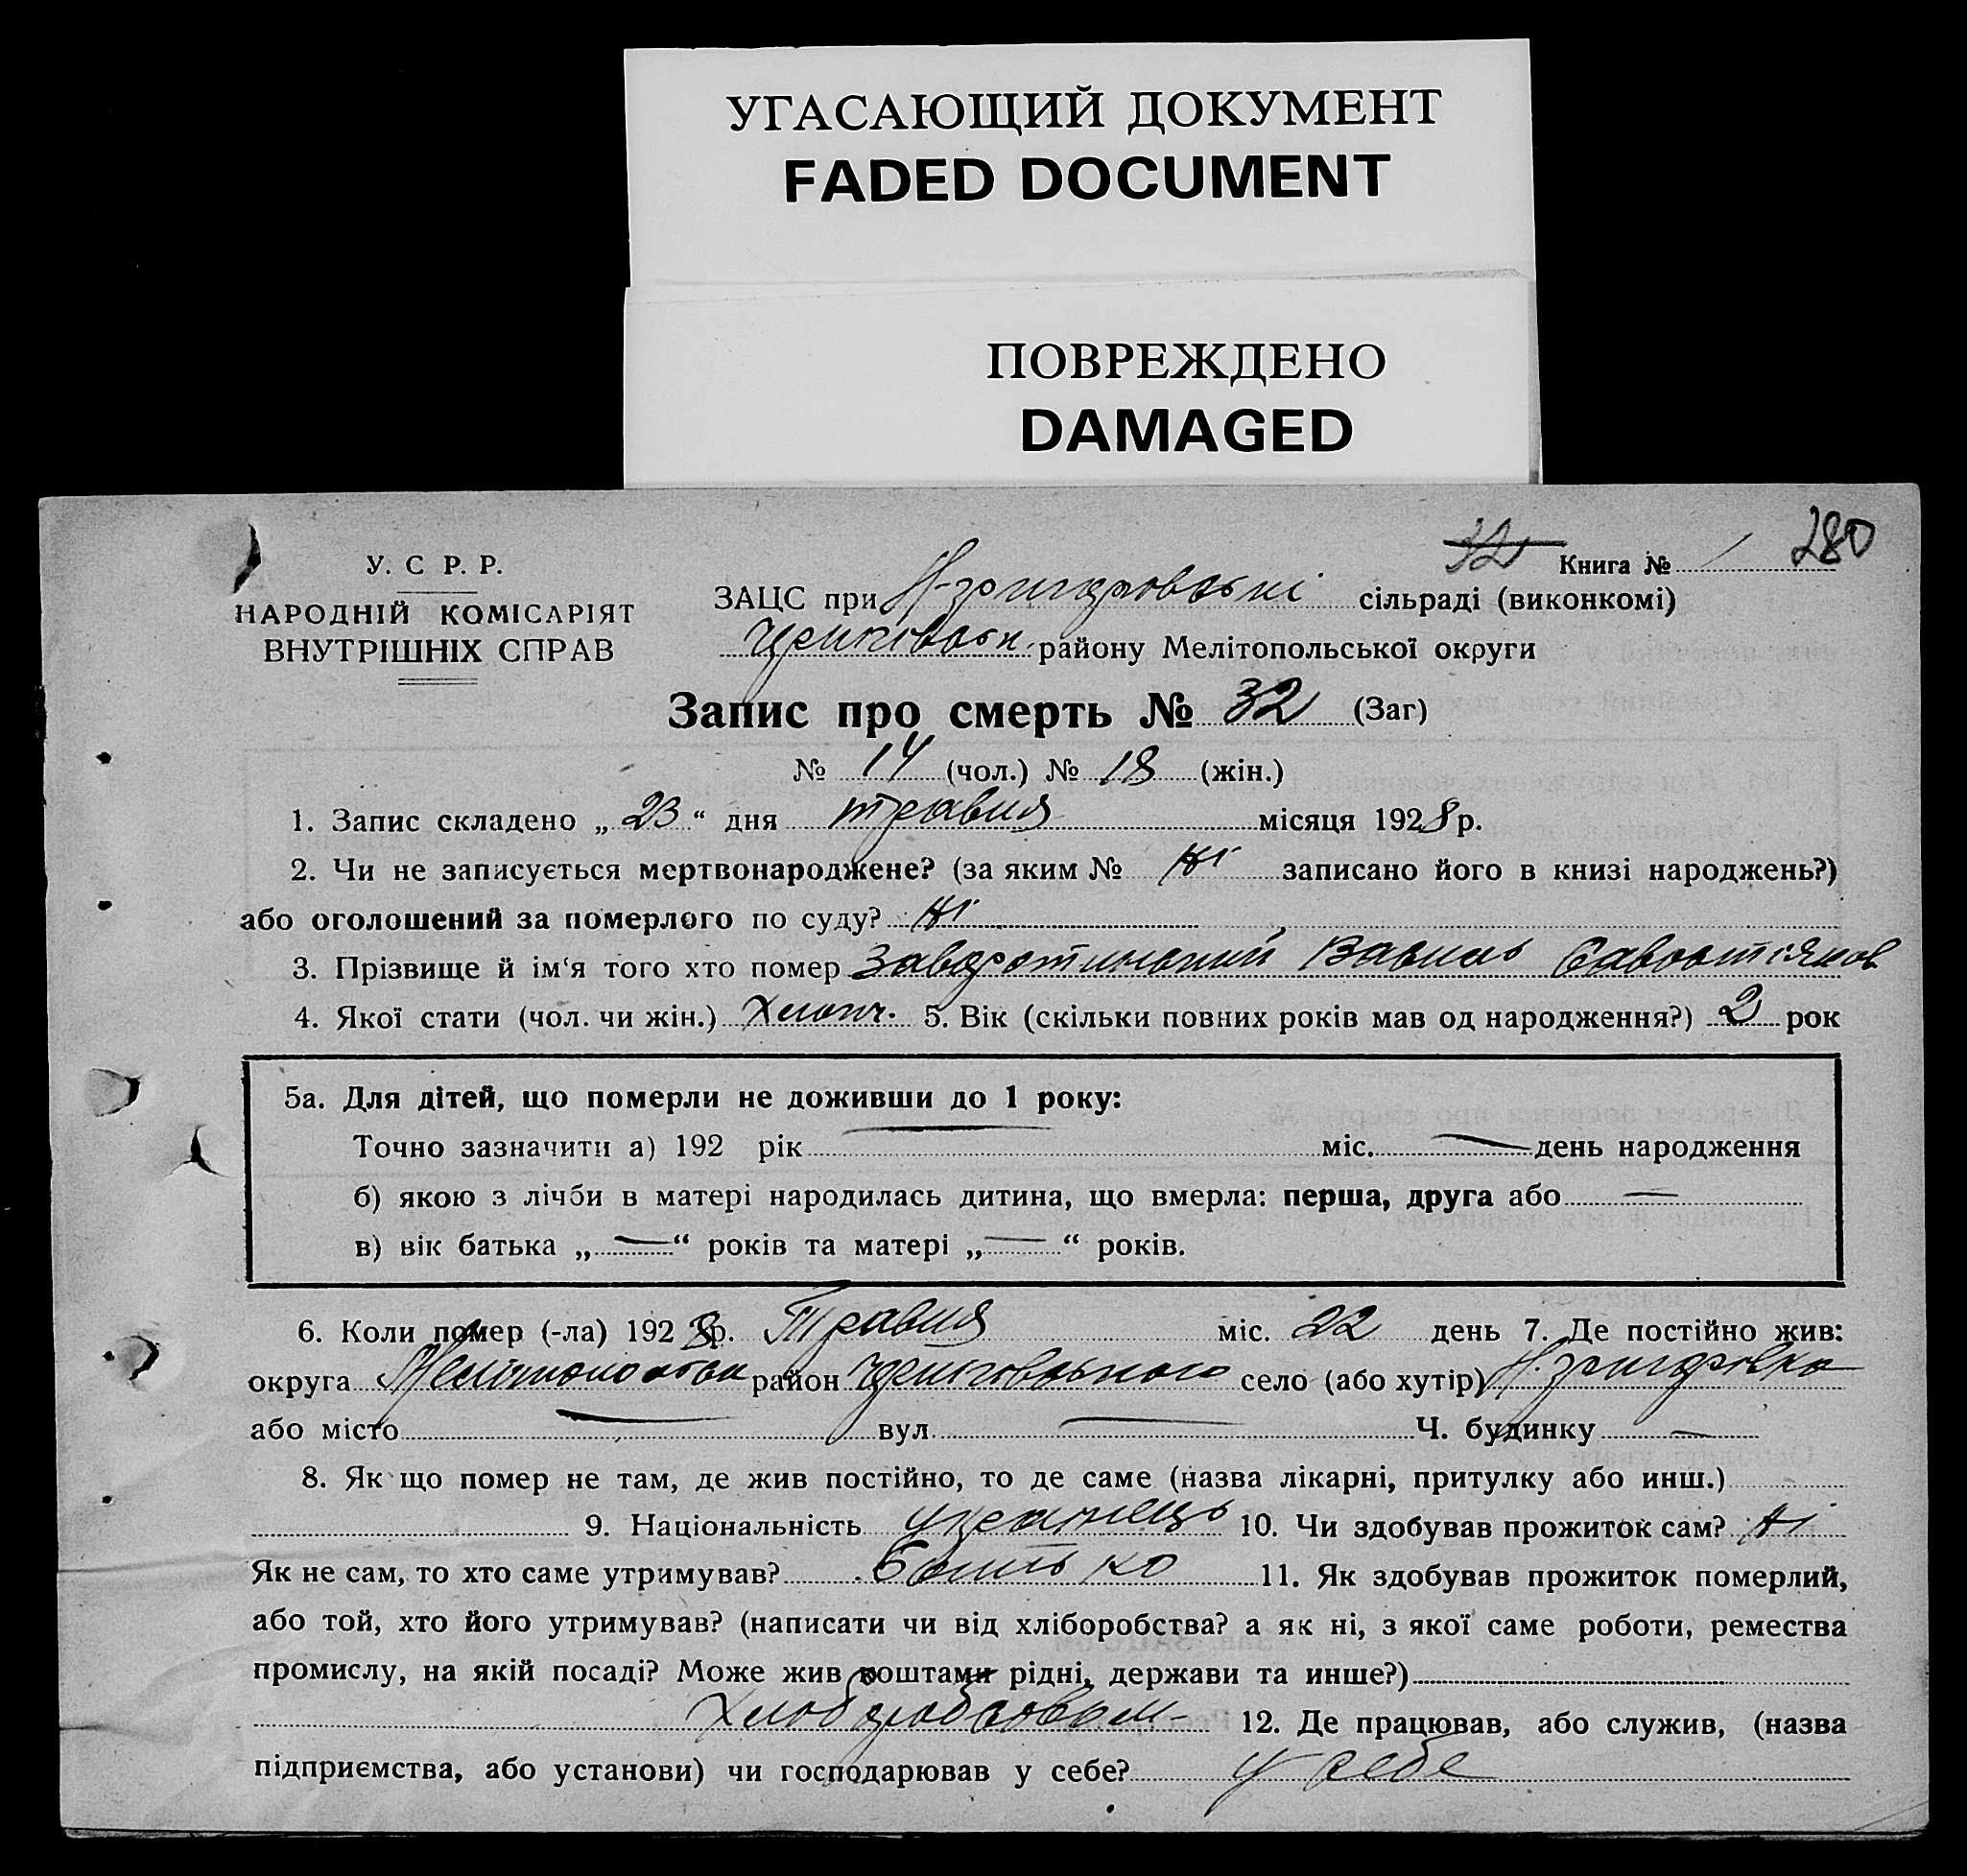 УГАСАЮЩИЙ ДОКУМЕНТ
FADED DOCUMENT
ПОВРЕЖДЕНО
DAMAGED
32 Книга № 1 280
У. С Р. Р.
НАРОДНІЙ КОМІСАРІЯТ
ВНУТРІШНІХ СПРАВ
ЗАЦС при Н-григоровській сільраді (виконкомі)
району Мелітопольської округи
Запис про смерть № 32 (Заг)
№ 14 (чол.) № 18 (жін.)
1. Запис складено „ 23 “ дня травня місяця 1928 р.
2. Чи не записується мертвонароджене? (за яким № ні записано його в книзі народжень?)
або оголошений за померлого по суду? ні
3. Прізвище й ім‘я того хто помер Василь
4. Якої стати (чол. чи жін.) Хлопч. 5. Вік (скільки повних років мав од народження?) 2 рок
5а. Для дітей, що померли не доживши до 1 року:
Точно зазначити а) 192 рік — міс. — день народження
б) якою з лічби в матері народилась дитина, що вмерла: перша, друга або —
в) вік батька „ — “ років та матері „ — “ років.
6. Коли помер (-ла) 1928 р. Травня міс. 22 день 7. Де постійно жив:
округа Мелітопольськ район село (або хутір) Н. григоровка
або місто — вул. — Ч. будинку —
8. Як що помер не там, де жив постійно, то де саме (назва лікарні, притулку або инш.)
9. Національність украінець 10. Чи здобував прожиток сам? ні
Як не сам, то хто саме утримував? Батько 11. Як здобував прожиток померлий,
або той, хто його утримував? (написати чи від хліборобства? а як ні, з якої саме роботи, ремества
промислу, на якій посаді? Може жив коштами рідні, держави та инше?)
12. Де працював, або служив, (назва
підприємства, або установи) чи господарював у себе? у себе